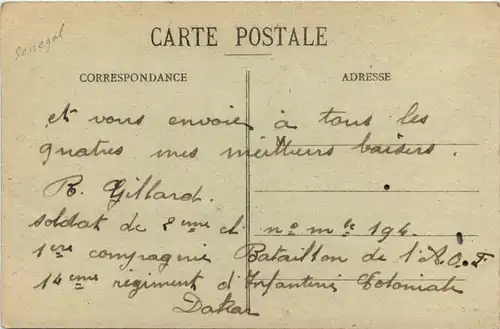 Senegal
CARTE POSTALE
CORRESPONDANCE
ADRESSE
et vous envoie à tous les
quatres mes meilleurs baisers.
R. Gillard.
soldat de 2eme cl nº mle 194.
1ere compagnie Bataillon de l'A.O.F
14eme régiment d'Infanterie Coloniale
Dakar